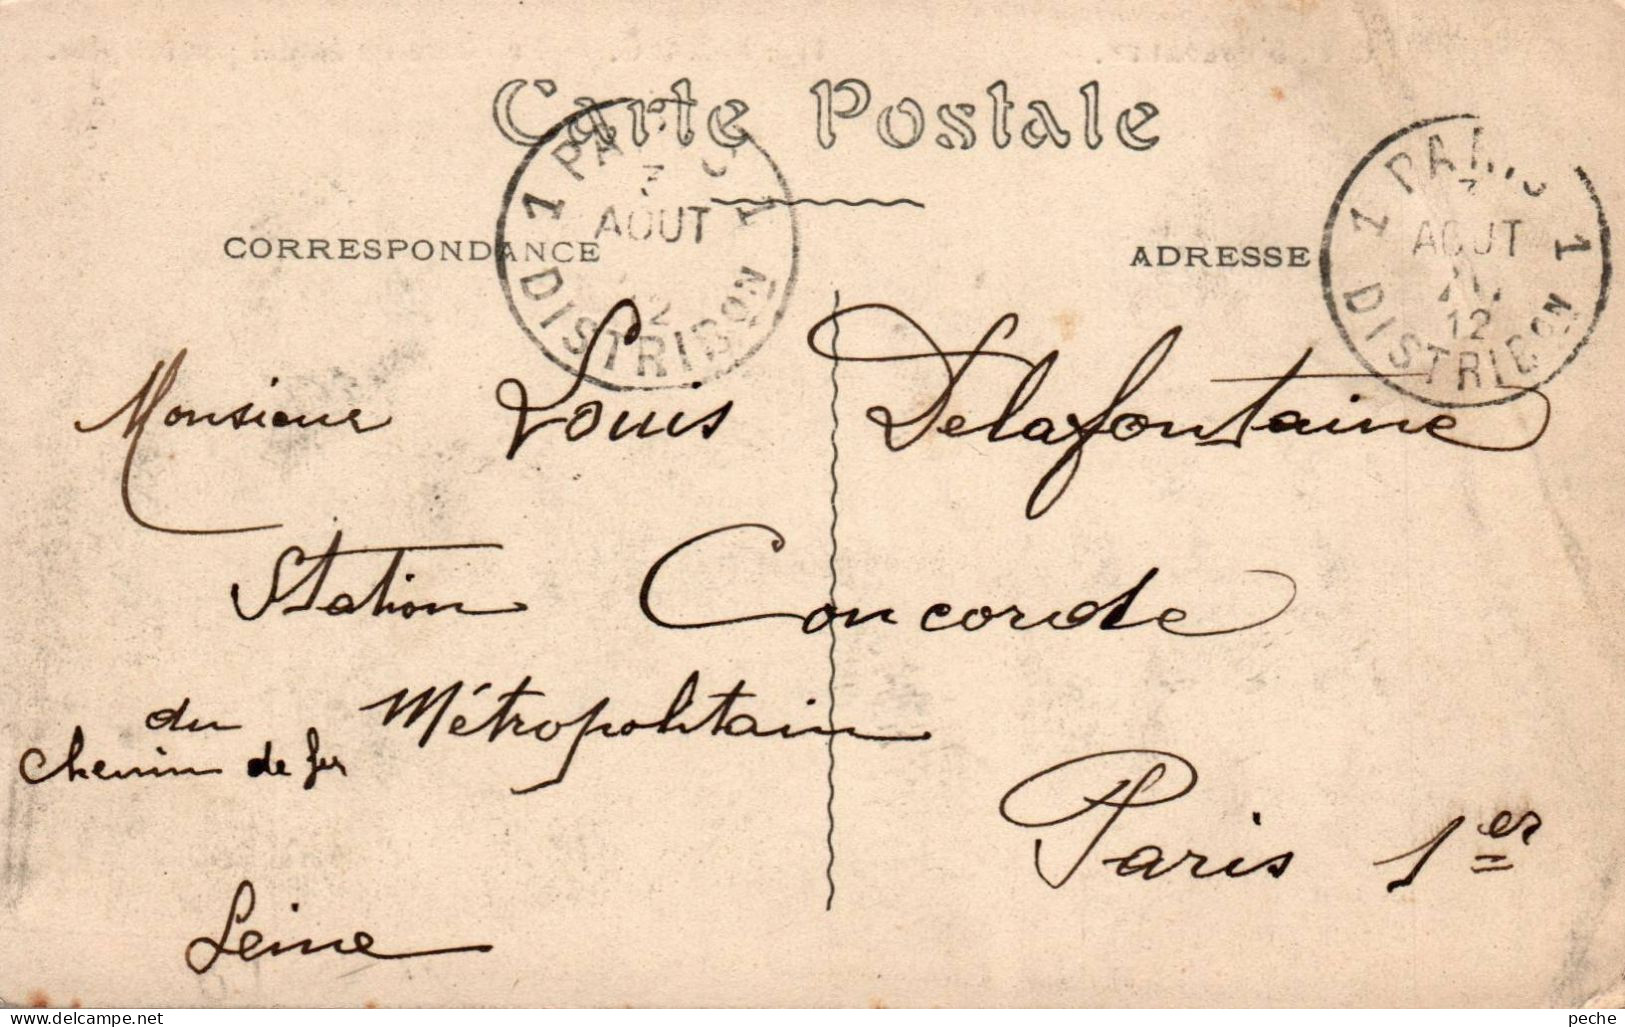 Carte Postale
CORRESPONDANCE
ADRESSE
1 PARIS 1
AOUT
DISTRIBON
1 PARIS 1
AOUT
12
DISTRIBON
Monsieur Louis Delafontaine
Station Concorde
du Métropolitain
chemin de fer
Paris 1er
Seine
peche